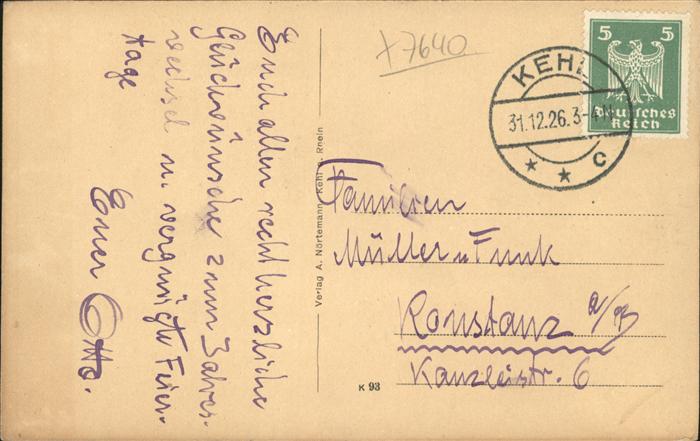 Euch allen recht herzliche
Glückwünsche zum Jahres-
wechsel u. vergnügte Feier-
tage
Euer Otto.
Verlag A. Nörtemann, Kehl a. Rhein
K 93
x7640
KEHL
31.12.26. 3-4 N
* * c
5 5
Deutsches
Reich
Familien
Müller u Funk
Konstanz a/
Kanzleistr. 6